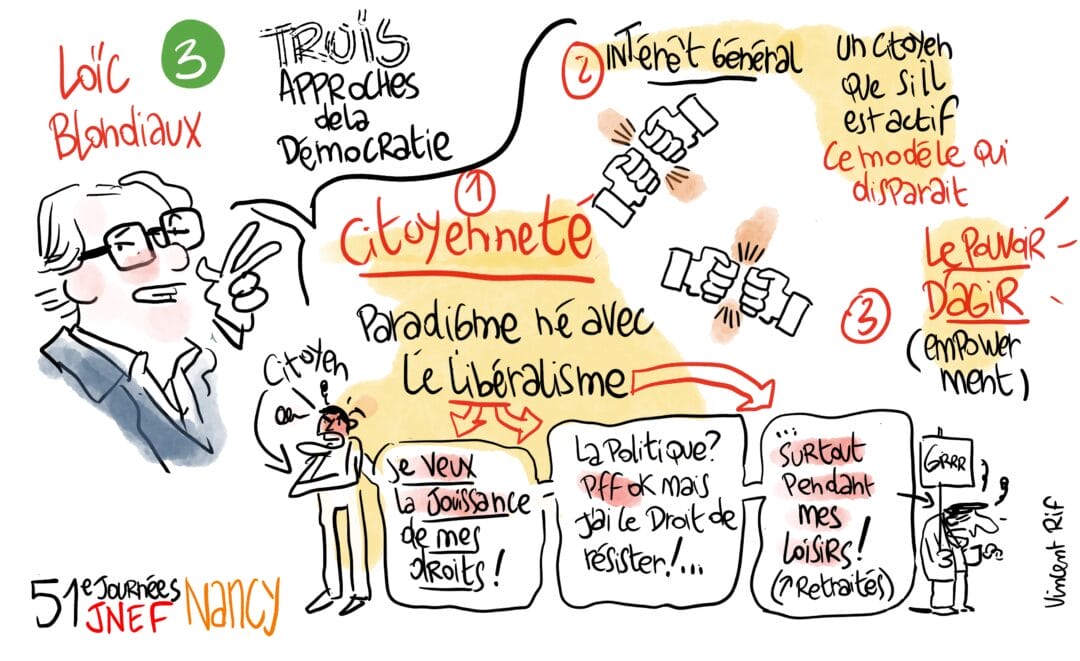 Loïc
Blondiaux
3
TROIS
APPROCHES
de la
Démocratie
1
Citoyenneté
Paradigme né avec
le libéralisme
Citoyen
Je veux
la jouissance
de mes
droits !
La Politique?
Pff ok mais
j'ai le Droit de
résister!...
...
surtout
Pendant
mes
Loisirs!
(↑ Retraités)
GRRR
2
INTérêt Général
Un citoyen
que s'il
est actif
Ce modèle qui
disparait
3
Le Pouvoir
D'agir
(empower
ment)
51e Journées
JNEF
Nancy
Vincent Rif